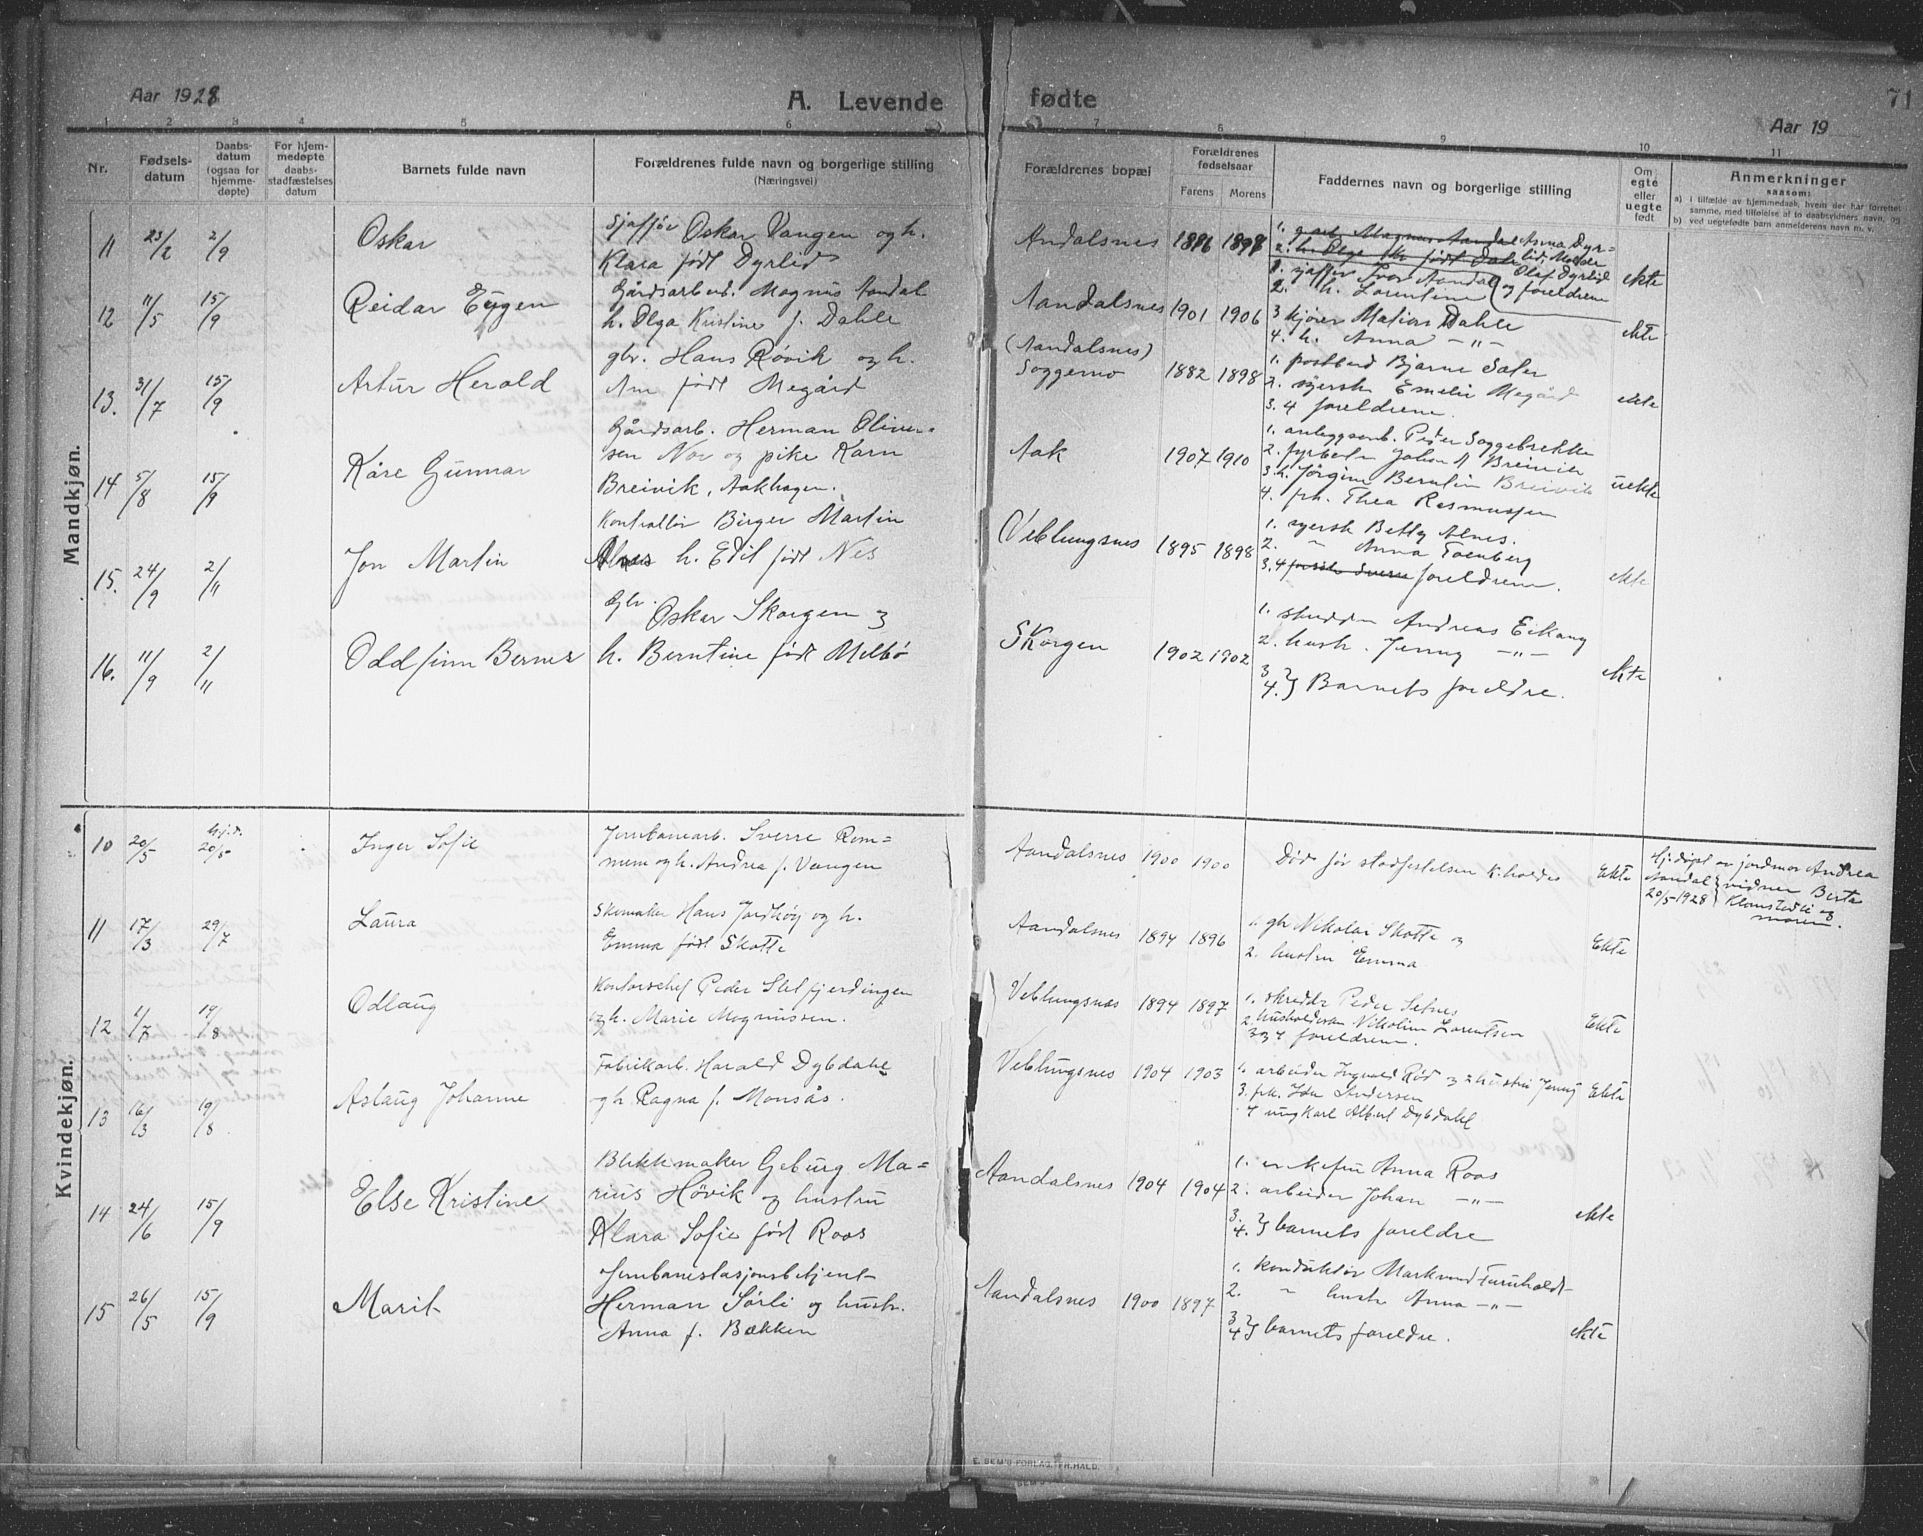 Aar 1928
A. Levende fødte
71
Aar 19
1 2 3 4 5 6 7 8 9 10 11
Nr.
Fødsels-
datum
Daabs-
datum
(ogsaa for
hjemme-
døpte)
For hjem-
medøpte
daabs-
stadfæstelses
datum
Barnets fulde navn
Forældrenes fulde navn og borgerlige stilling
(Næringsvei)
Forældrenes bopæl
Forældrenes
fødselsaar
Farens Morens
Faddernes navn og borgerlige stilling
Om
egte
eller
uegte
født
Anmerkninger
saasom:
a) i tilfælde av hjemmedaab, hvem der har forrettet
samme, med tilføielse af to daabsvidners navn, og
b) ved uegtefødte barn anmelderens navn m. v.
Mandkjøn.
11 23/2 2/9 Oskar
Sjaffør Oskar Vangen og h.
Klara født Dyrlid
Andalsnes 1896 1898
1. Magnus Aandal Asma Dyr=
2. h. Olga født Dahle lid, Molde
Olaf Dyrlid
og foreldrene
ekte
12 11/5 15/9 Reidar Eugen
Gårdsarbeid. Magnus Aandal
h. Olga Kristine f. Dahle
Aandalsnes 1901 1906
1. sjaffør Ivar Aandal
2. h. Lorentine
3 kjører Matias Dahle
4. h. Anna -"-
ekte
13. 31/7 15/9 Artur Herald
gbr. Hans Røvik og h.
Am født Megård
(Aandalsnes)
Soggemo 1882 1898
1. postbud Bjarne Sæter
2. syersk Emelie Megård
3. 4 foreldrene.
ekte
14 5/8 15/9 Kåre Gunnar
Gårdsarb. Herman Oliver=
sen Nor og pike Karn
Breivik, Aakhagen.
Aak 1907 1910
1. anleggsarb. Peder Soggebrekke
2. fyrbeter Johan Breivik
3. h. Jørgine Berntine Breivik
4. frk. Thea Rasmussen
uekte
15. 24/9 2/11 Jon Martin
Kontrollør Birger Martin
Alnes h. Edil født Nes
Veblungsnes 1895 1898
1. syersk Betty Alnes.
2. " Anna Toenberg
3. 4 foreldrene.
ekte
16. 11/9 2/11 Oddfinn Berner
Gbr. Oskar Skorgen og
h. Berntine født Melbø
Skorgen 1902 1902
1. skredder Andreas Eikang
2. hustr. Jenny -"-
3
4. } Barnets foreldre.
ekte
Kvindekjøn.
10 20/5 hj.d. 20/5 Inger Sofie
Jernbanearb. Sverre Rem=
mem og h. Andrea f. Vangen
Aandalsnes 1900 1900
Død før stadfestelsen k. holdes
Ekte
Hj.døpt av jordmor Andrea
Aandal } vidner Berta
20/5-1928 } Klaustedli og
moren.
11 17/3 29/7 Laura
Skomaker Hans Jordhøy og h.
Emma født Skotte
Aandalsnes 1894 1896
1. gbr Nikolai Skotte og
2. hustru Emma
Ekte
12 1/7 19/8 Odlaug
Kontorschef Peder Setfjerdingen
og h. Marie Magnussen.
Veblungsnæs 1894 1897
1. skredder Peder Setnes
2. husholderske Nikoline Lorentsen
3 og 4 foreldrene.
Ekte
13 16/3 19/8 Aslaug Johanne
Fabrikarb. Harald Dybdahl
og h. Ragna f. Monsås.
Veblungsnes 1904 1903
1. arbeider Ingvald Rød og 2 hustru Jenny
3. frk. Ida Andersen
4 ungkarl Albert Dybdahl
Ekte
14 24/6 15/9 Else Kristine
Blikkmaker Geburg Ma=
rius Høvik og hustru
Klara Sofie født Roos
Aandalsnes 1904 1904
1. enkefru Anna Roos
2. arbeider Johan -"-
3.
4. } barnets foreldre
ekte
15 26/5 15/9 Marit
Jernbanestasjonsbetjent
Herman Sørli og hustr.
Anna f. Bækken
Aandalsnes 1900 1897
1. konduktør Markund Furuholdt
2. " hustr Anna -"-
3
4 } barnets foreldre.
ekte
E. SEM'S FORLAG, FR.HALD.